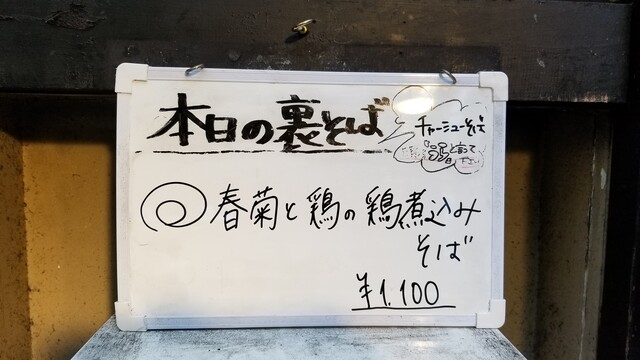 本日の裏そば
チャーシューそば
と言って
下さい
春菊と鶏の鶏煮込み
そば
¥1,100